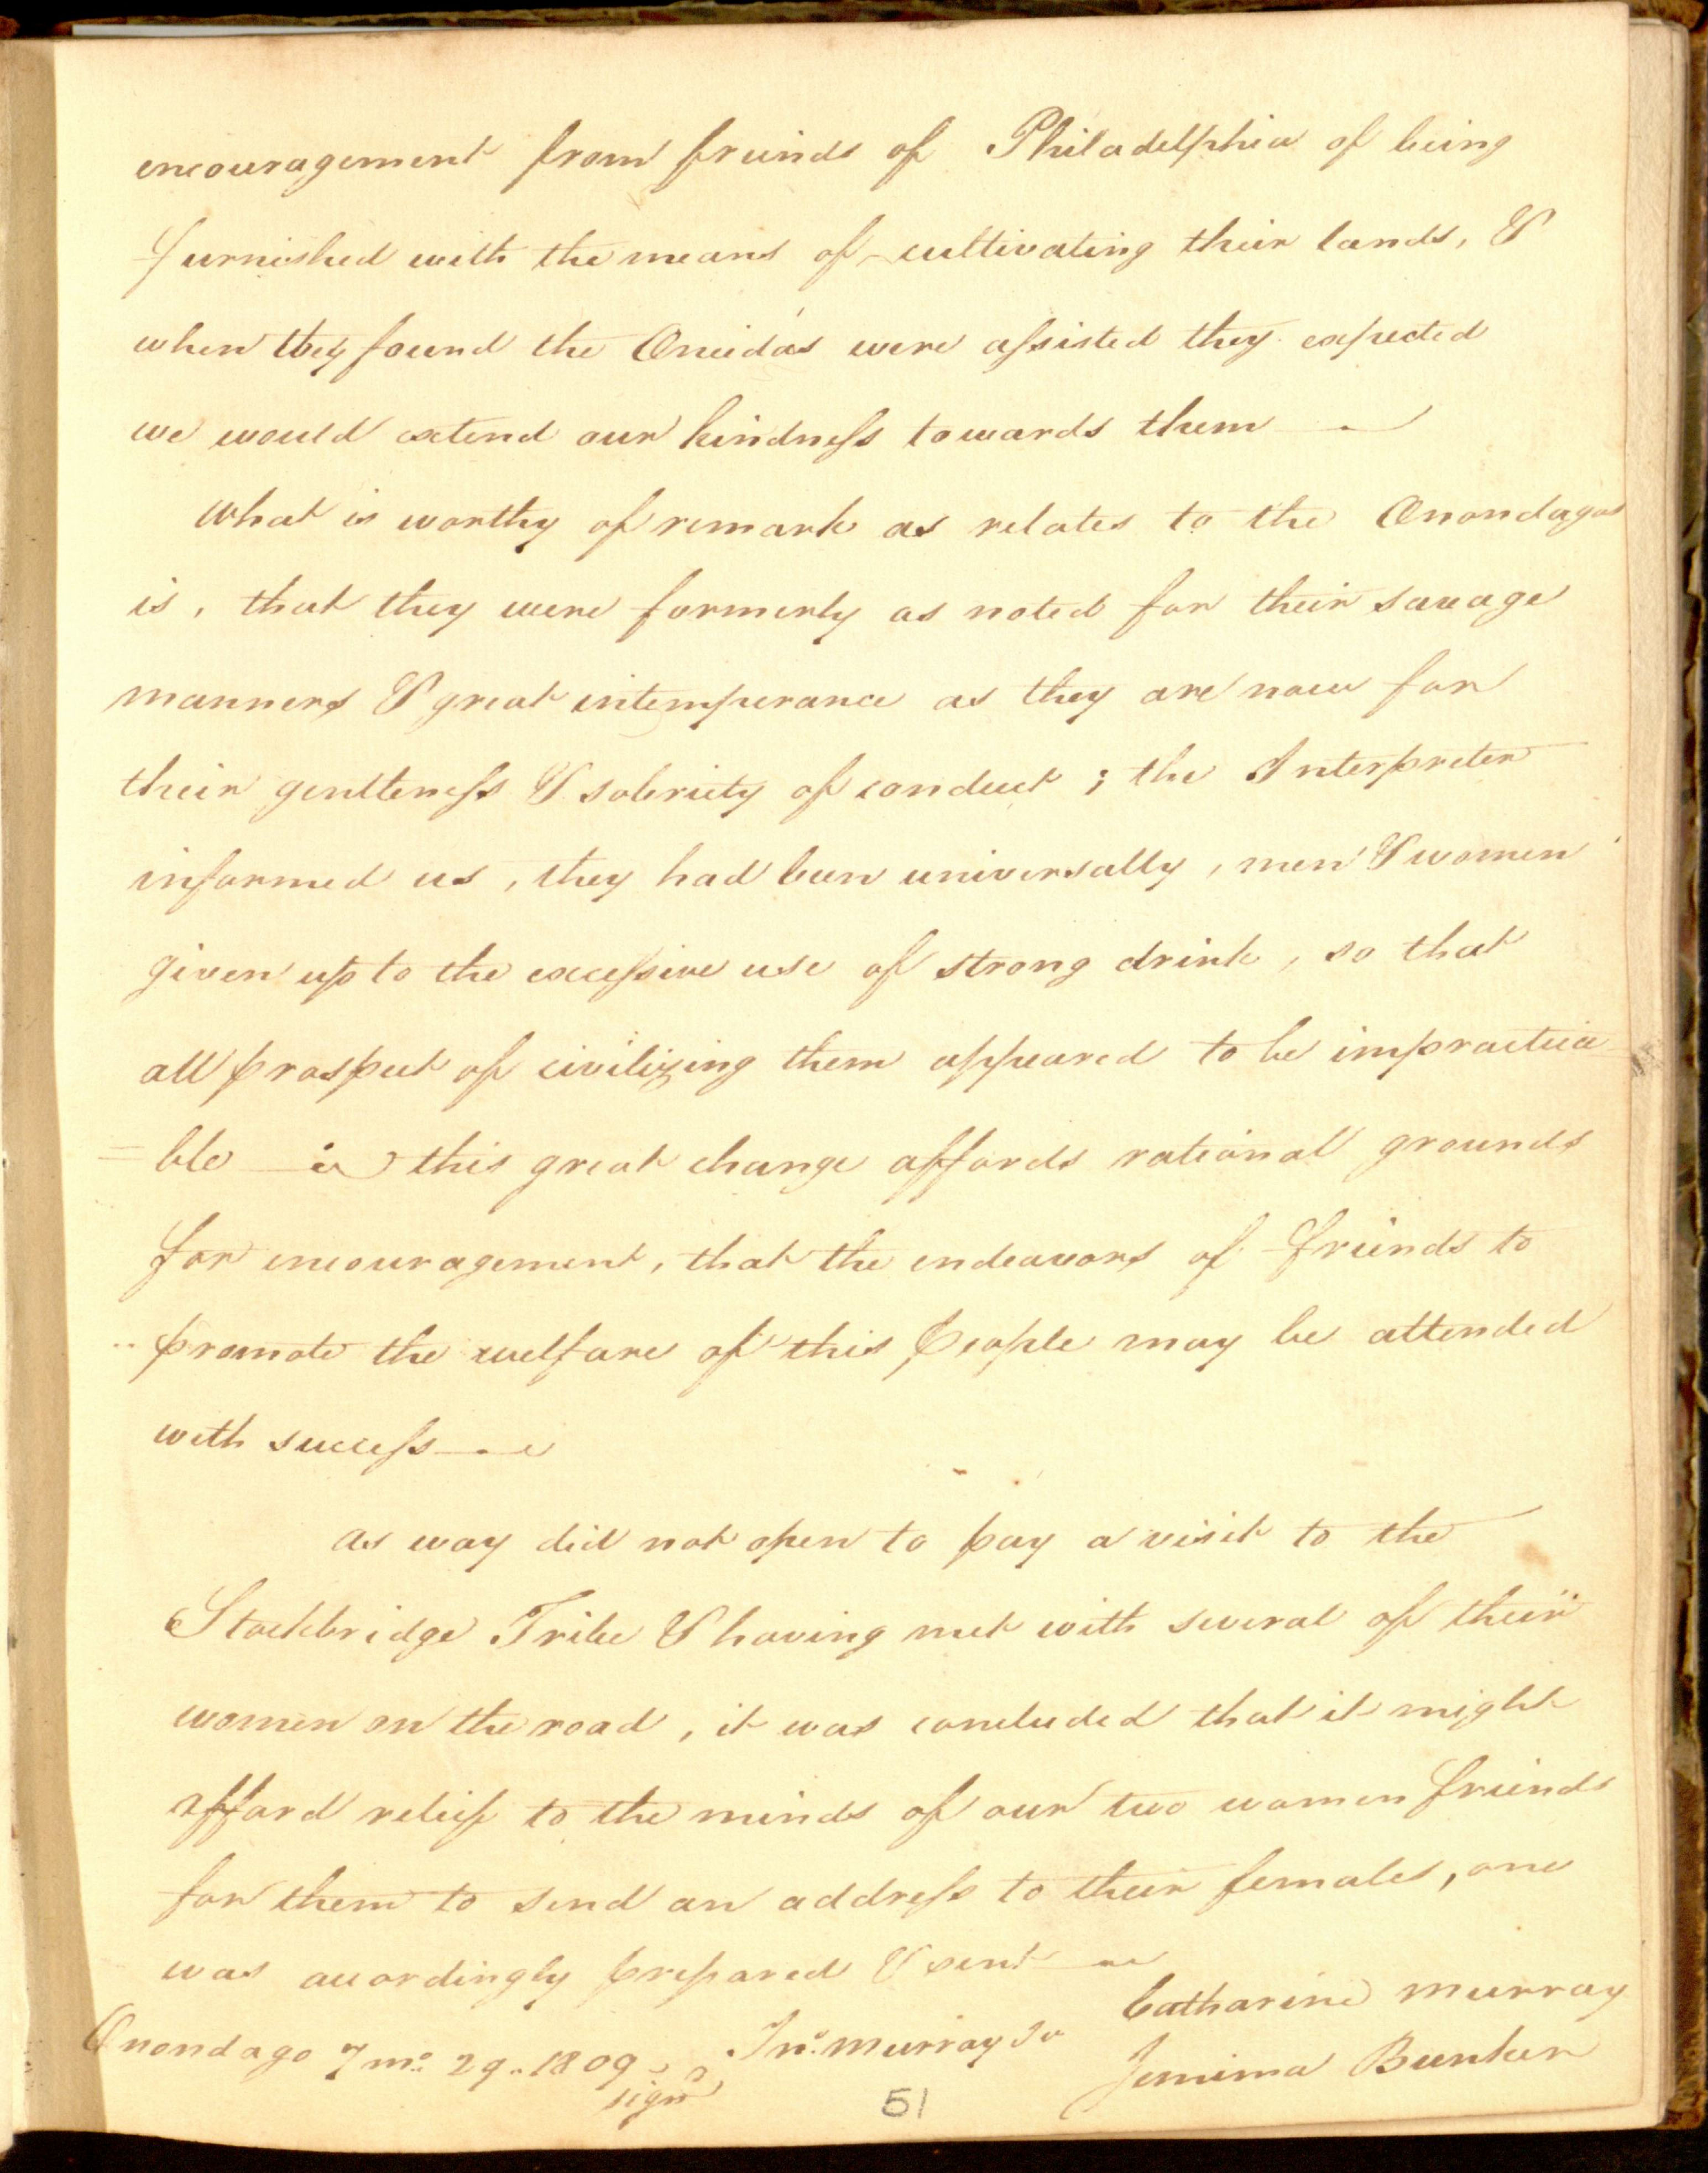 encouragement from friends of Philadelphia of being
furnished with the means of cultivating their lands, &
when they found the Oneida's were assisted they expected
we would extend our kindness towards them —
What is worthy of remark as relates to the Onondagas
is, that they were formerly as noted for their savage
manners & great intemperance as they are now for
their gentleness & sobriety of conduct; the Interpreter
informed us, they had been universally, men & women
given up to the excessive use of strong drink, so that
all prospect of civilizing them appeared to be impractica
=ble — this great change affords rational grounds
for encouragement, that the endeavors of friends to
promote the welfare of this People may be attended
with success —
As way did not open to pay a visit to the
Stockbridge Tribe & having met with several of their
women on the road, it was concluded that it might
afford relief to the minds of our two women friends
for them to send an address to their females, one
was accordingly prepared & sent —
Catharine Murray
Onondago 7 mo. 29. 1809 Jno. Murray Jr
Jemima Bunker
sign'd
51